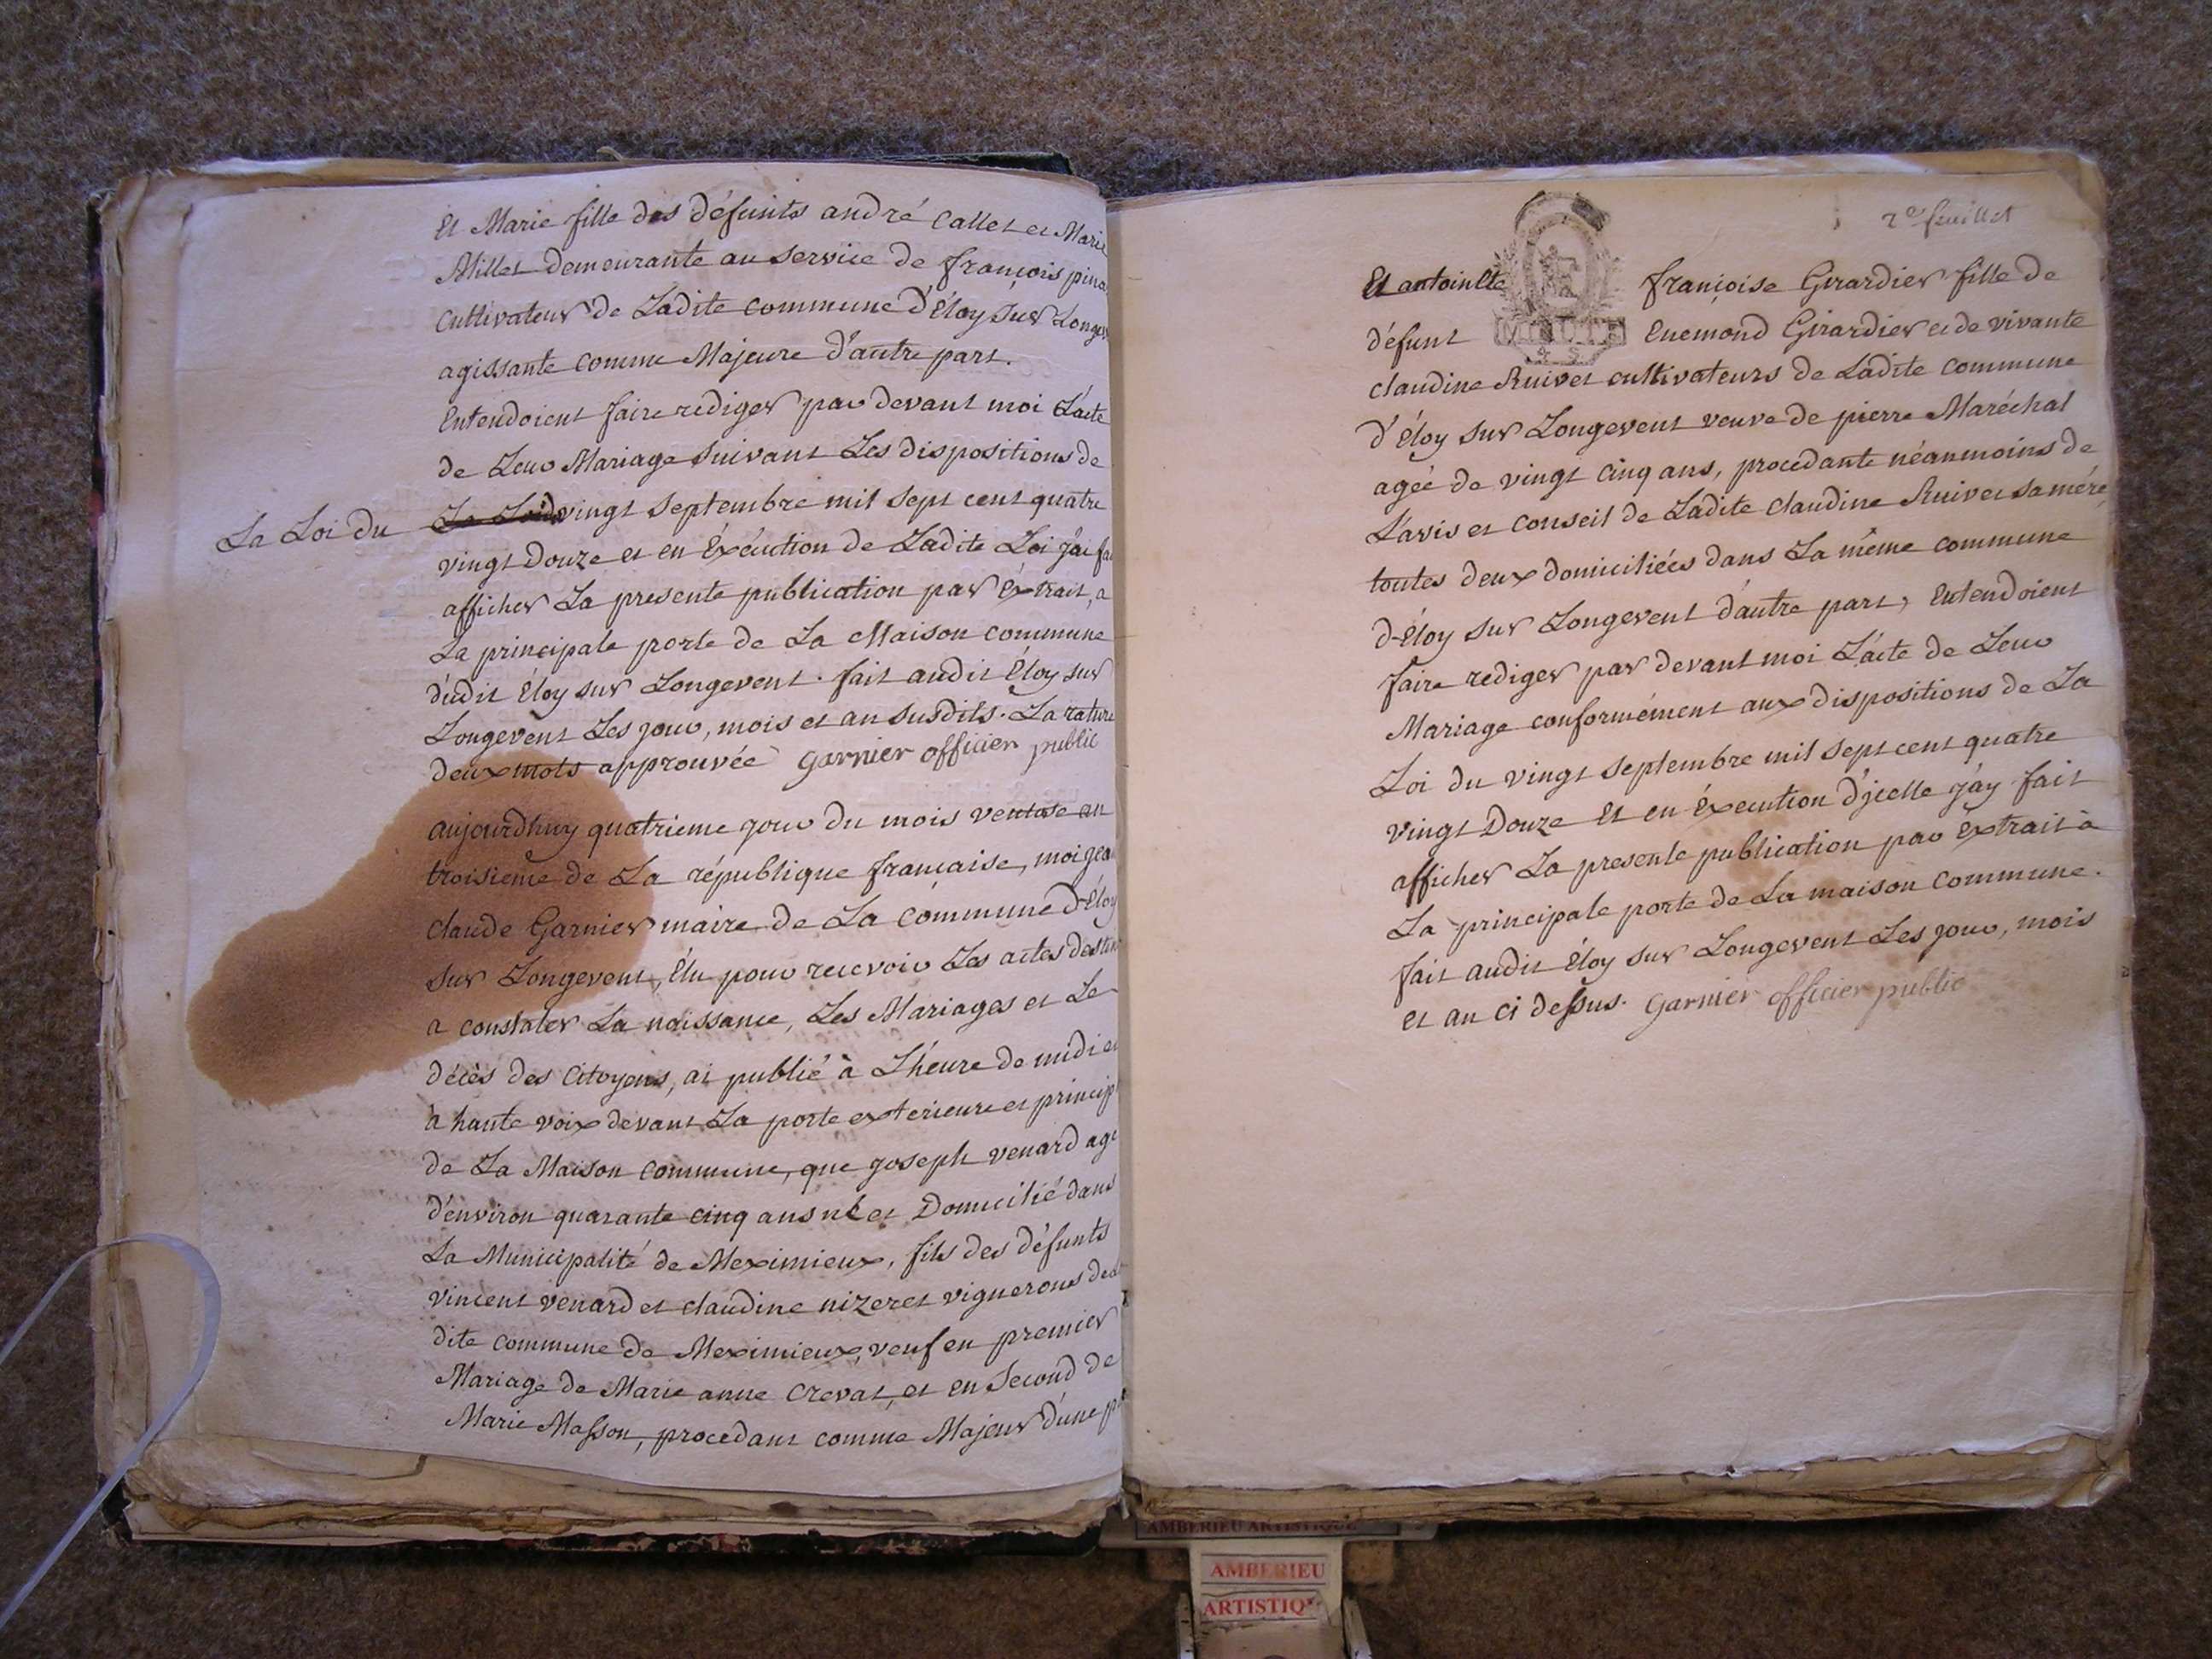 Et Marie fille des défunts andré Callet et Marie
Millet demeurante au service de françois pina
cultivateur de Ladite commune d'Éloy sur Longev
agissante comme Majeure d'autre part.
Entendoient faire rediger par devant moi L'acte
de Leur Mariage suivant Les dispositions de
La Loi du La Loi du vingt septembre mil sept cent quatre
vingt Douze et en Exécution de Ladite Loi j'ai fai
afficher La presente publication par Extrait, a
La principale porte de La Maison commune
dudit Éloy sur Longevent. fait audit Éloy sur
Longevent Les jour, mois et an susdits. La rature
deux mots approuvée Garnier officier public
aujourdhuy quatrieme jour du mois ventose an
troisieme de La république française, moi jea
claude Garnier maire de La commune d'Éloy
sur Longevent, Élu pour recevoir Les actes destin
a constater La naissance, Les Mariages et Le
décès des Citoyens, ai publié à L'heure de midi et
à haute voix devant La porte exterieure et princip
de La Maison commune, que joseph venard age
d'environ quarante cinq ans né et Domicilié dans
La Municipalité de Meximieux, fils des défunts
vincent venard et claudine nizeret vignerons de
dite commune de Meximieux, veuf en premier
Mariage de Marie anne Crevat, et en Second de
Marie Masson, procedant comme Majeur d'une p
2e feuillet
Et antoinette françoise Girardier fille de
défunt Enemond Girardier et de vivante
MINUTE
4 S
claudine Ruivet cultivateurs de Ladite commune
d'Éloy sur Longevent veuve de pierre Maréchal
agée de vingt cinq ans, procedante néanmoins de
L'avis et conseil de Ladite claudine Ruivet sa mére
toutes deux domiciliées dans La même commune
d'Éloy sur Longevent d'autre part, Entendoient
faire rediger par devant moi L'acte de Leur
Mariage conformément aux dispositions de La
Loi du vingt septembre mil sept cent quatre
vingt Douze Et en Éxecution d'jcelle j'ay fait
afficher La presente publication par Extrait à
La principale porte de La maison commune.
fait audit Éloy sur Longevent Les jour, mois
et an ci dessus. Garnier officier public
AMBERIEU ARTISTIQUE
AMBERIEU
ARTISTIQ